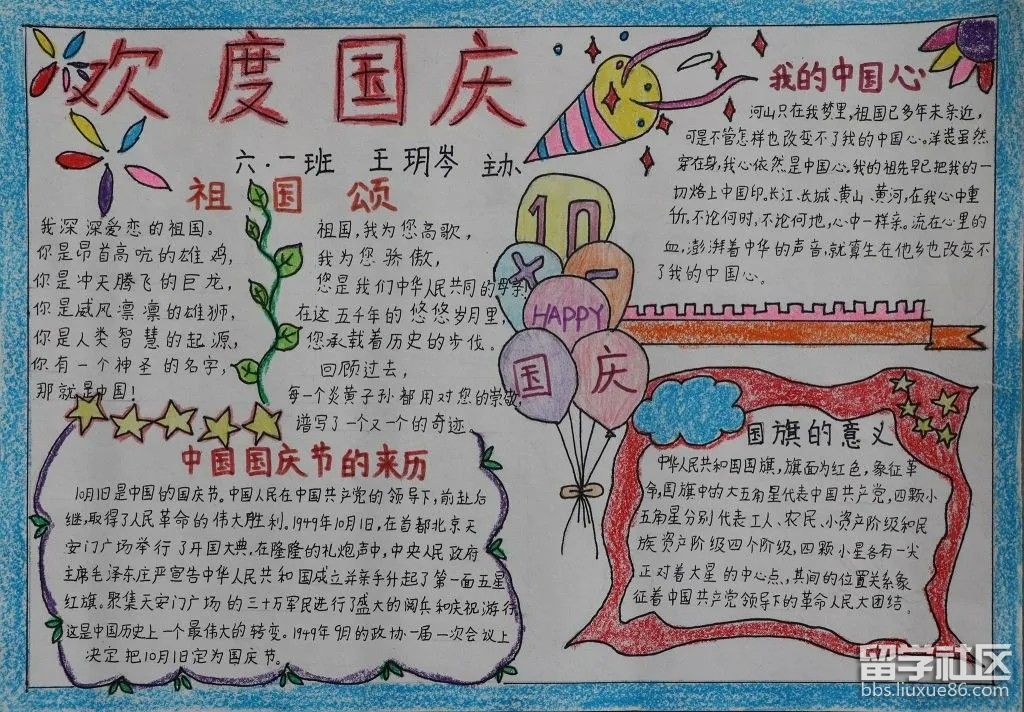 欢度国庆
六.一班 王玥岑 主办
祖国颂
我深深爱恋的祖国。
你是昂首高吭的雄鸡,
你是冲天腾飞的巨龙,
你是威风凛凛的雄狮,
你是人类智慧的起源,
你有一个神圣的名字,
那就是中国!
祖国,我为您高歌,
我为您骄傲,
您是我们中华人民共同的母亲!
在这五千年的悠悠岁月里,
您承载着历史的步伐。
回顾过去,
每一个炎黄子孙都用对您的崇敬,
谱写了一个又一个的奇迹。
中国国庆节的来历
10月1是中国的国庆节。中国人民在中国共产党的领导下,前赴后
继,取得了人民革命的伟大胜利。1949年10月1日,在首都北京天
安门广场举行了开国大典,在隆隆的礼炮声中,中央人民政府
主席毛泽东庄严宣告中华人民共和国成立并亲手升起了第一面五星
红旗。聚集天安门广场的三十万军民进行了盛大的阅兵和庆祝游行
这是中国历史上一个最伟大的转变。1949年9月的政协一届一次会议上
决定把10月1日定为国庆节。
10
X一
HAPPY
国庆
我的中国心
河山只在我梦里,祖国已多年未亲近,
可是不管怎样也改变不了我的中国心。洋装虽然
穿在身,我心依然是中国心。我的祖先早已把我的一
切烙上中国印。长江、长城、黄山、黄河,在我心中重
千斤,不论何时,不论何地,心中一样亲。流在心里的
血,澎湃着中华的声音,就算生在他乡也改变不
了我的中国心。
国旗的意义
中华人民共和国国旗,旗面为红色,象征革
命,国旗中的大五角星代表中国共产党,四颗小
五角星分别代表工人、农民、小资产阶级和民
族资产阶级四个阶级,四颗小星各有一尖
正对着大星的中心点,其间的位置关系象
征着中国共产党领导下的革命人民大团结。
留学社区
bbs.liuxue86.com